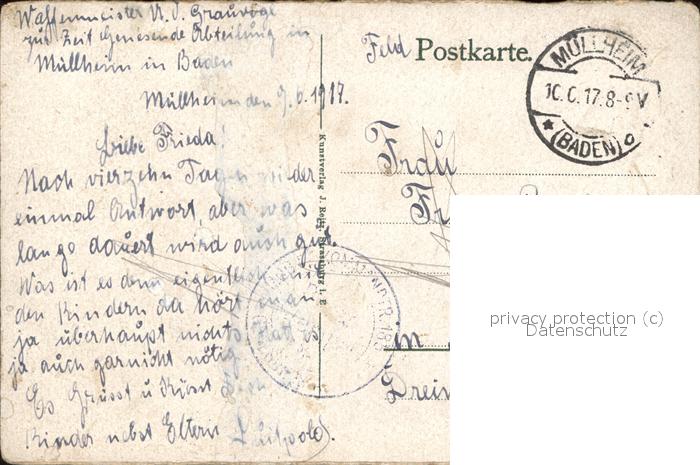 Waffenmeister U. O. Grauvogl
zur Zeit Genesende Abteilung in
Müllheim in Baden
Müllheim den 9.6.1917.
Liebe Frieda!
Nach vierzehn Tagen wieder
einmal Antwort, aber was
lange dauert wird auch gut.
Was ist es denn eigentlich mit
den Kindern da hört man
ja überhaupt nichts. Hatt es
ja auch garnicht nötig.
Es Grüsst u Küsst Dich
Kinder nebst Eltern Luitpold.
Feld Postkarte.
MÜLLHEIM
10.6.17.8-9V
(BADEN)
Frau
in
Kunstverlag J.
privacy protection (c)
Datenschutz